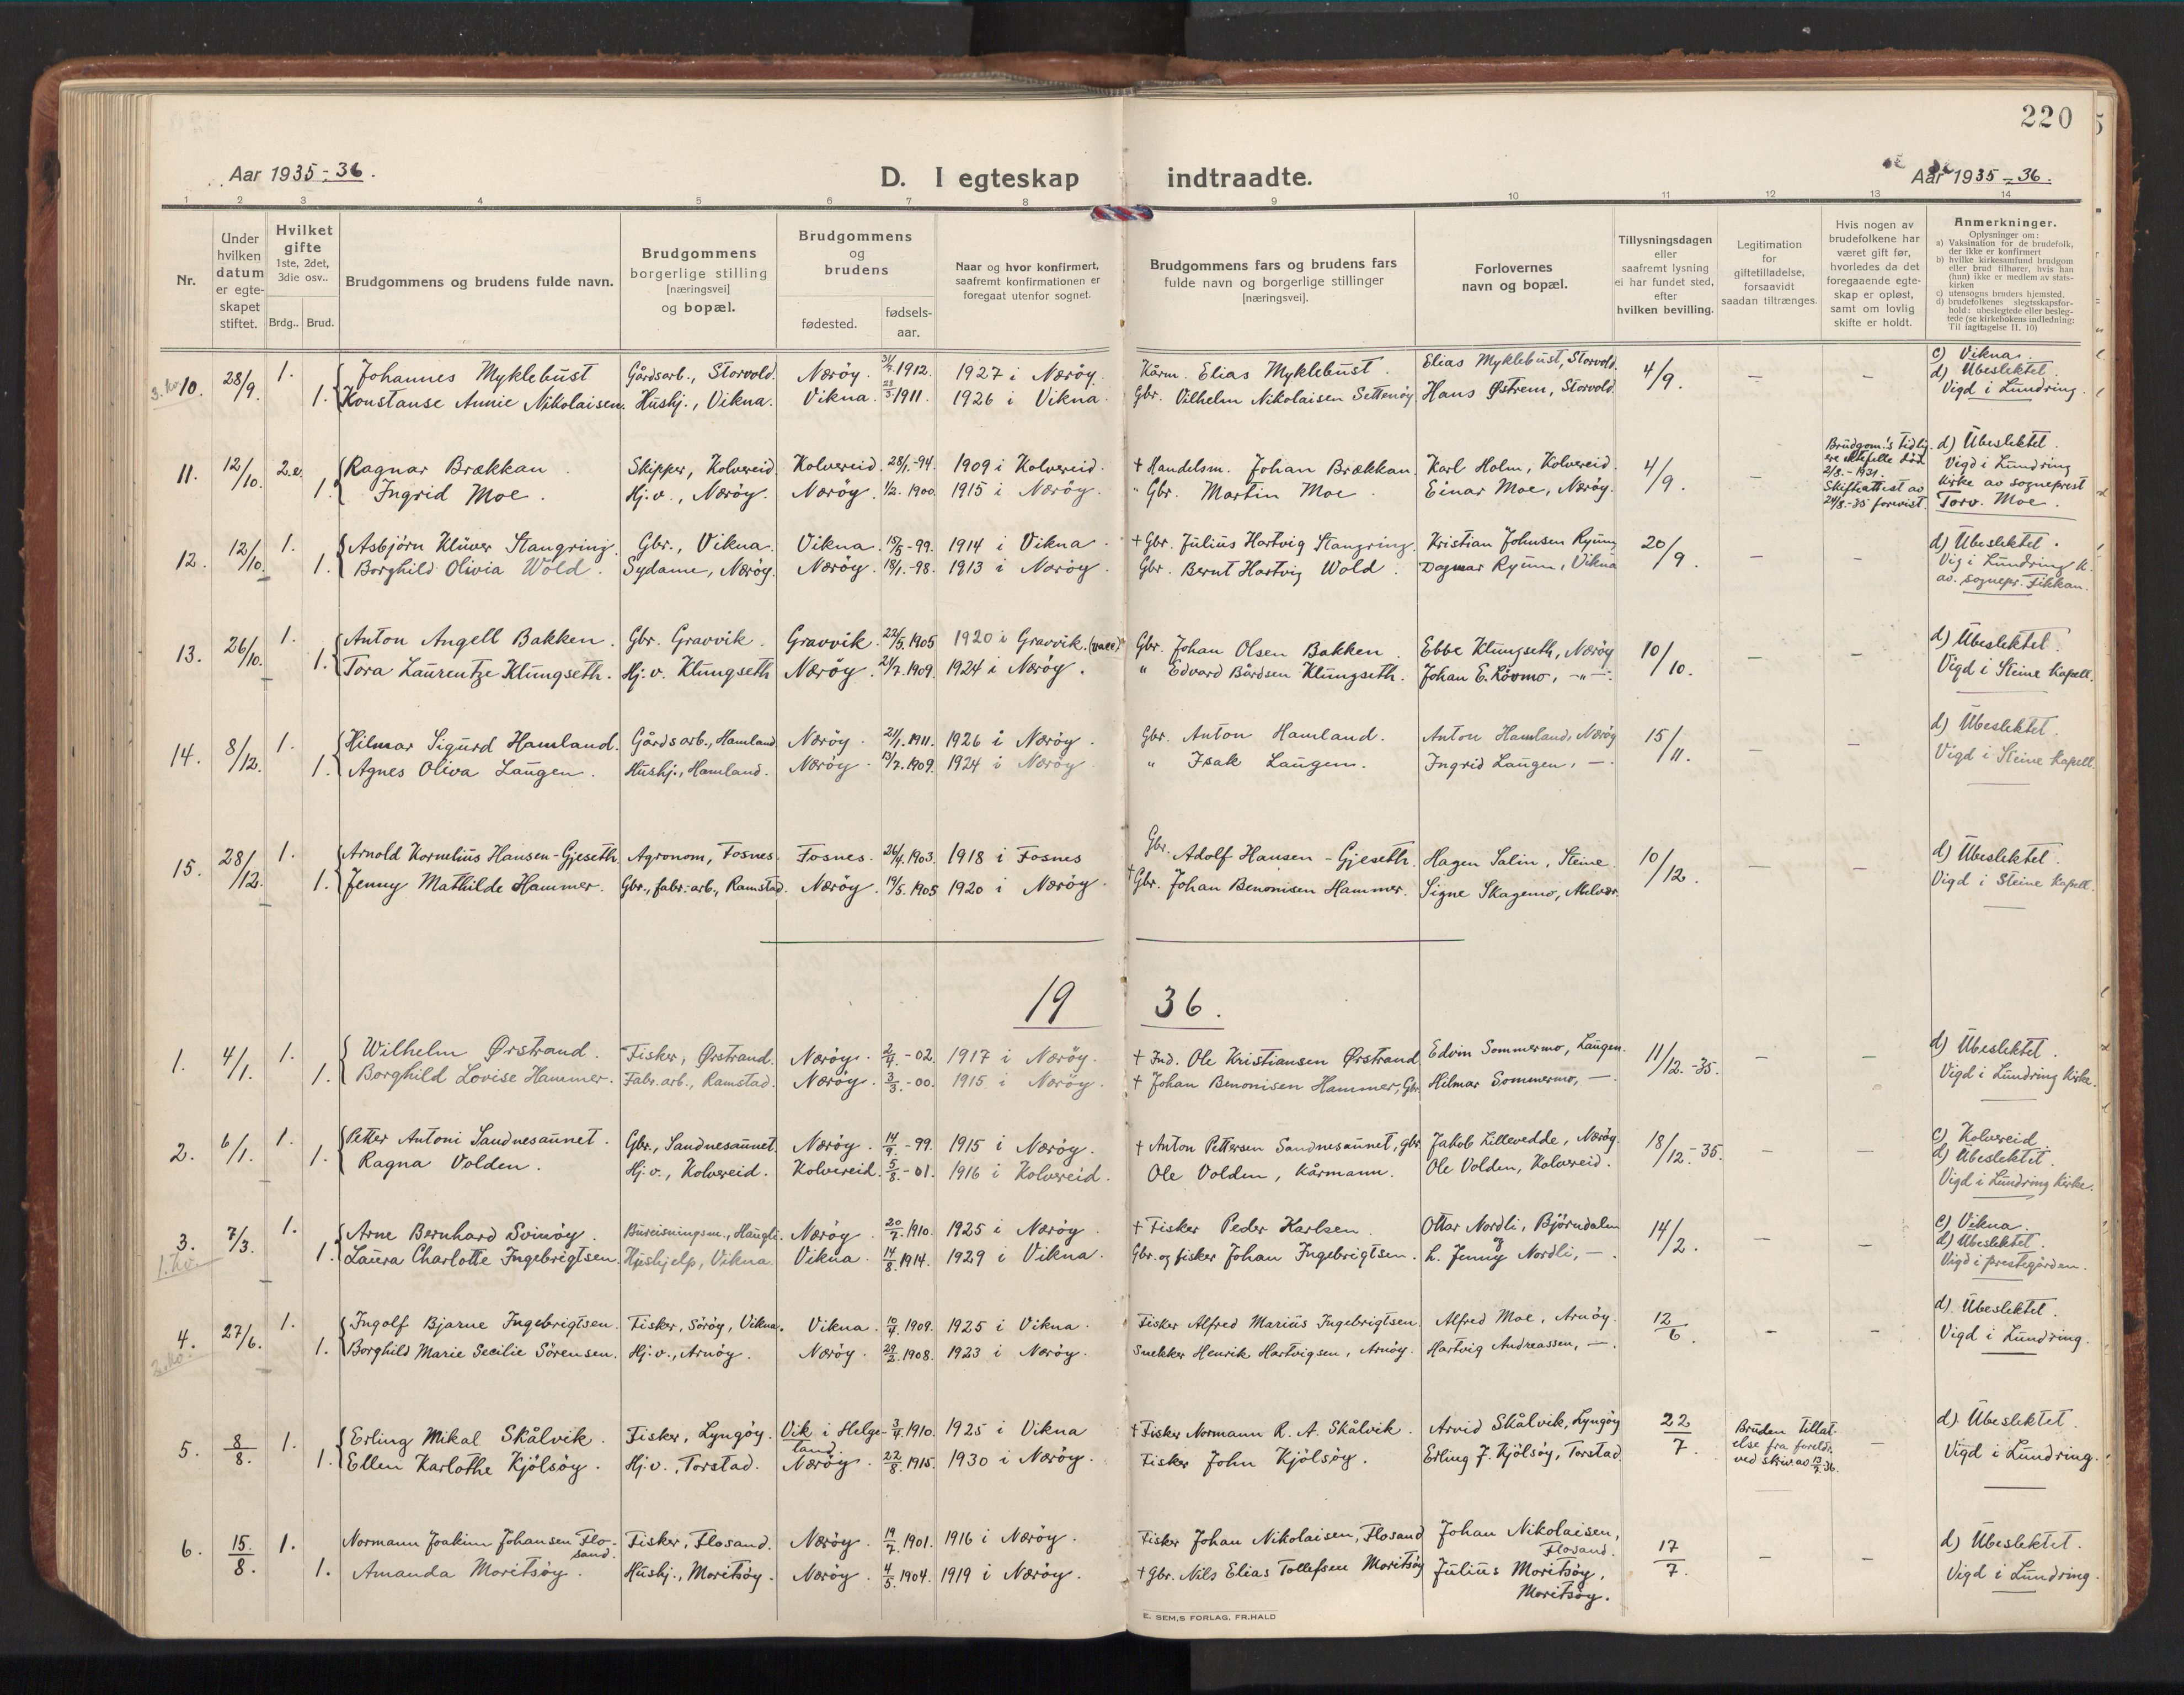 220
Aar 1935-36.
D. I egteskap indtraadte.
Aar 1935-36.
1 2 3 4 5 6 7 8 9 10 11 12 13 14
Nr.
Under hvilken datum er egteskapet stiftet.
Hvilket gifte 1ste, 2det, 3die osv..
Brdg.. Brud.
Brudgommens og brudens fulde navn.
Brudgommens borgerlige stilling [næringsvei] og bopæl.
Brudgommens og brudens
fødested.
fødsels-aar.
Naar og hvor konfirmert, saafremt konfirmationen er foregaat utenfor sognet.
Brudgommens fars og brudens fars fulde navn og borgerlige stillinger [næringsvei].
Forlovernes navn og bopæl.
Tillysningsdagen eller saafremt lysning ei har fundet sted, efter hvilken bevilling.
Legitimation for giftetilladelse, forsaavidt saadan tiltrænges.
Hvis nogen av brudefolkene har været gift før, hvorledes da det foregaaende egteskap er opløst, samt om lovlig skifte er holdt.
Anmerkninger.
Oplysninger om:
a) Vaksination for de brudefolk, der ikke er konfirmert
b) hvilke kirkesamfund brudgom eller brud tilhører, hvis han (hun) ikke er medlem av statskirken
c) utensogns bruders hjemsted.
d) brudefolkenes slegtsskapsforhold: ubeslegtede eller beslegtede (se kirkebokens indledning: Til iagttagelse II. 10)
3. ko. 10. 28/9. 1. Johannes Myklebust Gårdsarb., Storvold. Nærøy. 1912. 1927 i Nærøy. Kårm. Elias Myklebust. Elias Myklebust, Storvold. 4/9. – – c) Vikna.
1. Konstanse Annie Nikolaisen. Hushj., Vikna. Vikna 23/3 1911. 1926 i Vikna. Gbr. Vilhelm Nikolaisen Settenøy Hans Østrem, Storvold. d) Ubeslektet.
Vigd i Lundring.
11. 12/10. 2.e. Ragnar Brækkan. Skipper, Kolvereid. Kolvereid. 28/1.-94. 1909 i Kolvereid. + Handelsm. Johan Brækkan. Karl Holm, Kolvereid. 4/9. – Brudgom.'s tidligere ektefelle död 2/8.-1931. Skifteattest av 24/8.-35 forevist. d) Ubeslektet.
1. Ingrid Moe. Hj.v., Nærøy. Nærøy. 1/2. 1900. 1915 i Nærøy. " Gbr. Martin Moe. Einar Moe, Nærøy. Vigd i Lundring
kirke av sogneprest
Torv. Moe.
12. 12/10. 1. Asbjörn Klüver Stangring. Gbr., Vikna. Vikna. 15/5-99. 1914 i Vikna. + Gbr. Julius Hartvig Stangring. Kristian Johnsen Ryum 20/9. – – d) Ubeslektet.
1. Borghild Olivia Wold. Sydame, Nærøy. Nærøy. 18/1.-98. 1913 i Nærøy. Gbr. Bernt Hartvig Wold. Dagmar Ryum, Vikna Vig i Lundring k.
av. sognepr. Fikkan.
13. 26/10. 1. Anton Angell Bakken. Gbr. Gravvik. Gravvik. 22/5. 1905 1920 i Gravvik. Gbr. Johan Olsen Bakken. Ebbe Klungseth, Nærøy 10/10. – – d) Ubeslektet.
1. Tora Laurentze Klungseth. Hj.v. Klungseth Nærøy. 24/7. 1909. 1924 i Nærøy. " Edvard Bårdsen Klungseth. Johan E. Rövmo, -"-. Vigd i Steine kapell.
14. 8/12. 1. Hilmar Sigurd Hamland. Gårdsarb., Hamland Nærøy. 21/1. 1911. 1926 i Nærøy. Gbr. Anton Hamland. Anton Hamland, Nærøy 15/11. – – d) Ubeslektet.
1. Agnes Oliva Laugen. Hushj., Hamland. Nærøy. 13/7. 1909. 1924 i Nærøy. " Isak Laugen. Ingrid Laugen, –. Vigd i Steine kapell.
15. 28/12. 1. Arnold Kornelius Hansen-Gjeseth. Agronom, Fosnes. Fosnes. 26/4. 1903. 1918 i Fosnes Gbr. Adolf Hansen-Gjeseth. Hagen Salin, Steine. 10/12. – – d) Ubeslektet.
1. Jenny Mathilde Hammer. Gbr., fabr.-arb., Ramstad. Nærøy. 19/5. 1905 1920 i Nærøy. + Gbr. Johan Benonisen Hammer. Signe Skagemo, Melvær. Vigd i Steine kapell.
1936.
1. 4/1. 1. Wilhelm Ørstrand. Fisker, Ørstrand. Nærøy. 2/4.-02. 1917 i Nærøy. + Ind. Ole Kristiansen Ørstrand Edvin Sommermo, Laugen. 11/12.-35. – – d) Ubeslektet.
1. Borghild Lovise Hammer. Fabr.arb., Ramstad. Nærøy. 3/3.-00. 1915 i Nærøy. + Johan Benonisen Hammer, Gbr. Hilmar Sommermo, –. Vigd i Lundring kirke.
2. 6/1. 1. Petter Antoni Sandnesaunet. Gbr., Sandnesaunet. Nærøy. 14/9.-99. 1915 i Nærøy. + Anton Pettersen Sandnesaunet, gbr. Jakob Lillevedde, Nærøy. 18/12.-35. – – c) Kolvereid
1. Ragna Volden. Hj.v., Kolvereid. Kolvereid. 5/8.-01. 1916 i Kolvereid. Ole Volden, kårmann. Ole Volden, Kolvereid. d) Ubeslektet.
Vigd i Lundring kirke.
3. 7/3. 1. Arne Bernhard Svinøy. Bureisningsm., Haugli. Nærøy. 20/7. 1910. 1925 i Nærøy. + Fisker Peder Karlsen. Ottar Nordli, Björndalen 14/2. – – c) Vikna.
1. ko. 1. Laura Charlotte Ingebrigtsen. Hushjelp, Vikna. Vikna. 14/8. 1914. 1929 i Vikna. Gbr. og fisker Johan Ingebrigtsen. og h. Jenny Nordli, –. d) Ubeslektet.
Vigd i prestegården.
4. 27/6. 1. Ingolf Bjarne Ingebrigtsen. Fisker, Sörøy, Vikna. Vikna. 10/4. 1909. 1925 i Vikna. Fisker Alfred Marius Ingebrigtsen. Alfred Moe, Arnøy. 12/6. – – d) Ubeslektet.
1. Borghild Marie Secilie Sörensen. Hj.v., Arnøy. Nærøy. 29/2. 1908. 1923 i Nærøy. Snekker Henrik Hartvigsen, Arnøy. Hartvig Andreassen, –. Vigd i Lundring.
5. 8/8. 1. Erling Mikal Skålvik. Fisker, Lyngøy. Vik i Helgeland. 3/4. 1910. 1925 i Vikna + Fisker Normann R. A. Skålvik. Arvid Skålvik, Lyngøy 22/7. Bruden tillatelse fra foreldr. ved skriv. av 13/7-36. – d) Ubeslektet.
1. Ellen Karlothe Kjölsöy. Hj.v., Torstad. Nærøy. 22/8. 1915. 1930 i Nærøy. Fisker John Kjölsöy. Erling J. Kjölsöy, Torstad. Vigd i Lundring.
6. 15./8. 1. Normann Joakim Johansen Flosand. Fisker, Flosand. Nærøy. 19/7. 1901. 1916 i Nærøy. Fisker Johan Nikolaisen, Flosand Johan Nikolaisen, Flosand. 17/7. – – d) Ubeslektet.
1. Amanda Moritsöy. Hushj., Moritsöy. Nærøy. 4/5. 1904. 1919 i Nærøy. + Gbr. Nils Elias Tollefsen Moritsöy Julius Moritsöy, Moritsöy. Vigd i Lundring.
E. SEM,S FORLAG, FR.HALD